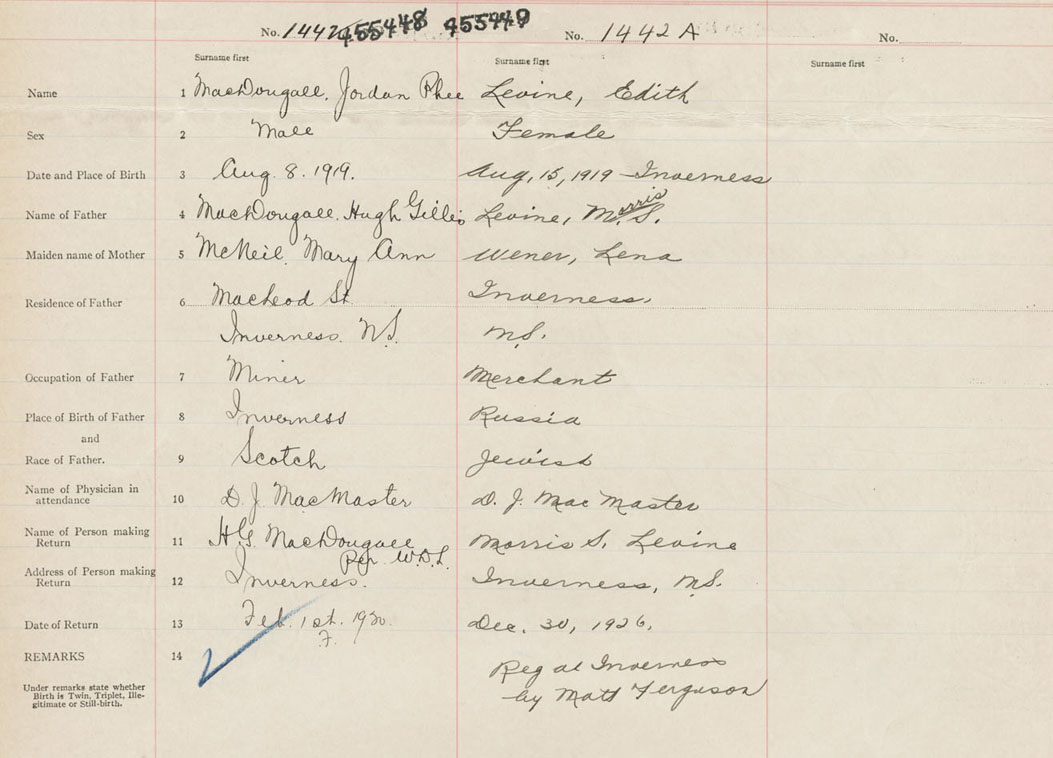 No. 1442 455448 455449 No. 1442 A No.
Surname first Surname first Surname first
Name 1 MacDougall, Jordan Phee Levine, Edith
Sex 2 Male Female
Date and Place of Birth 3 Aug. 8. 1919. Aug, 15, 1919 - Inverness
Name of Father 4 MacDougall, Hugh Gillis Levine, Morris S.
Maiden name of Mother 5 McNeil, Mary Ann Wener, Lena
Residence of Father 6 MacLeod St. Inverness,
Inverness. N.S. N.S.
Occupation of Father 7 Miner Merchant
Place of Birth of Father 8 Inverness Russia
and
Race of Father. 9 Scotch Jewish
Name of Physician in
attendance 10 D. J. MacMaster D. J. Mac Master
Name of Person making
Return 11 H.G. MacDougall Morris S. Levine
Per. W.D.L.
Address of Person making
Return 12 Inverness. Inverness, N.S.
Date of Return 13 Feb. 1st. 1920. Dec. 30, 1926.
F.
REMARKS 14 Reg at Inverness
Under remarks state whether
Birth is Twin, Triplet, Ille-
gitimate or Still-birth.
by Matt Ferguson